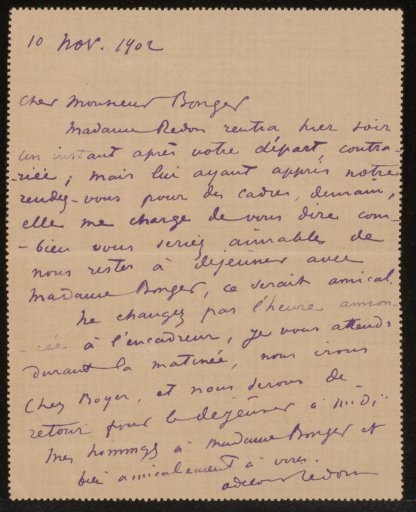 10 Nov. 1902
Cher Monsieur Bonger
Madame Redon rentra hier soir
un instant après votre départ contra-
-riée ; mais lui ayant appris notre
rendez-vous pour des cadres, demain,
elle me charge de vous dire com-
-bien vous seriez aimables de
nous rester à déjeuner avec
Madame Bonger, ce serait amical.
Ne changez pas l'heure annon-
-cée à l'encadreur, je vous attends
durant la matinée, nous irons
chez Boyer, et nous serons de
retour pour le déjeuner à midi
Mes hommages à Madame Bonger et
bien amicalement à vous.
Odilon Redon